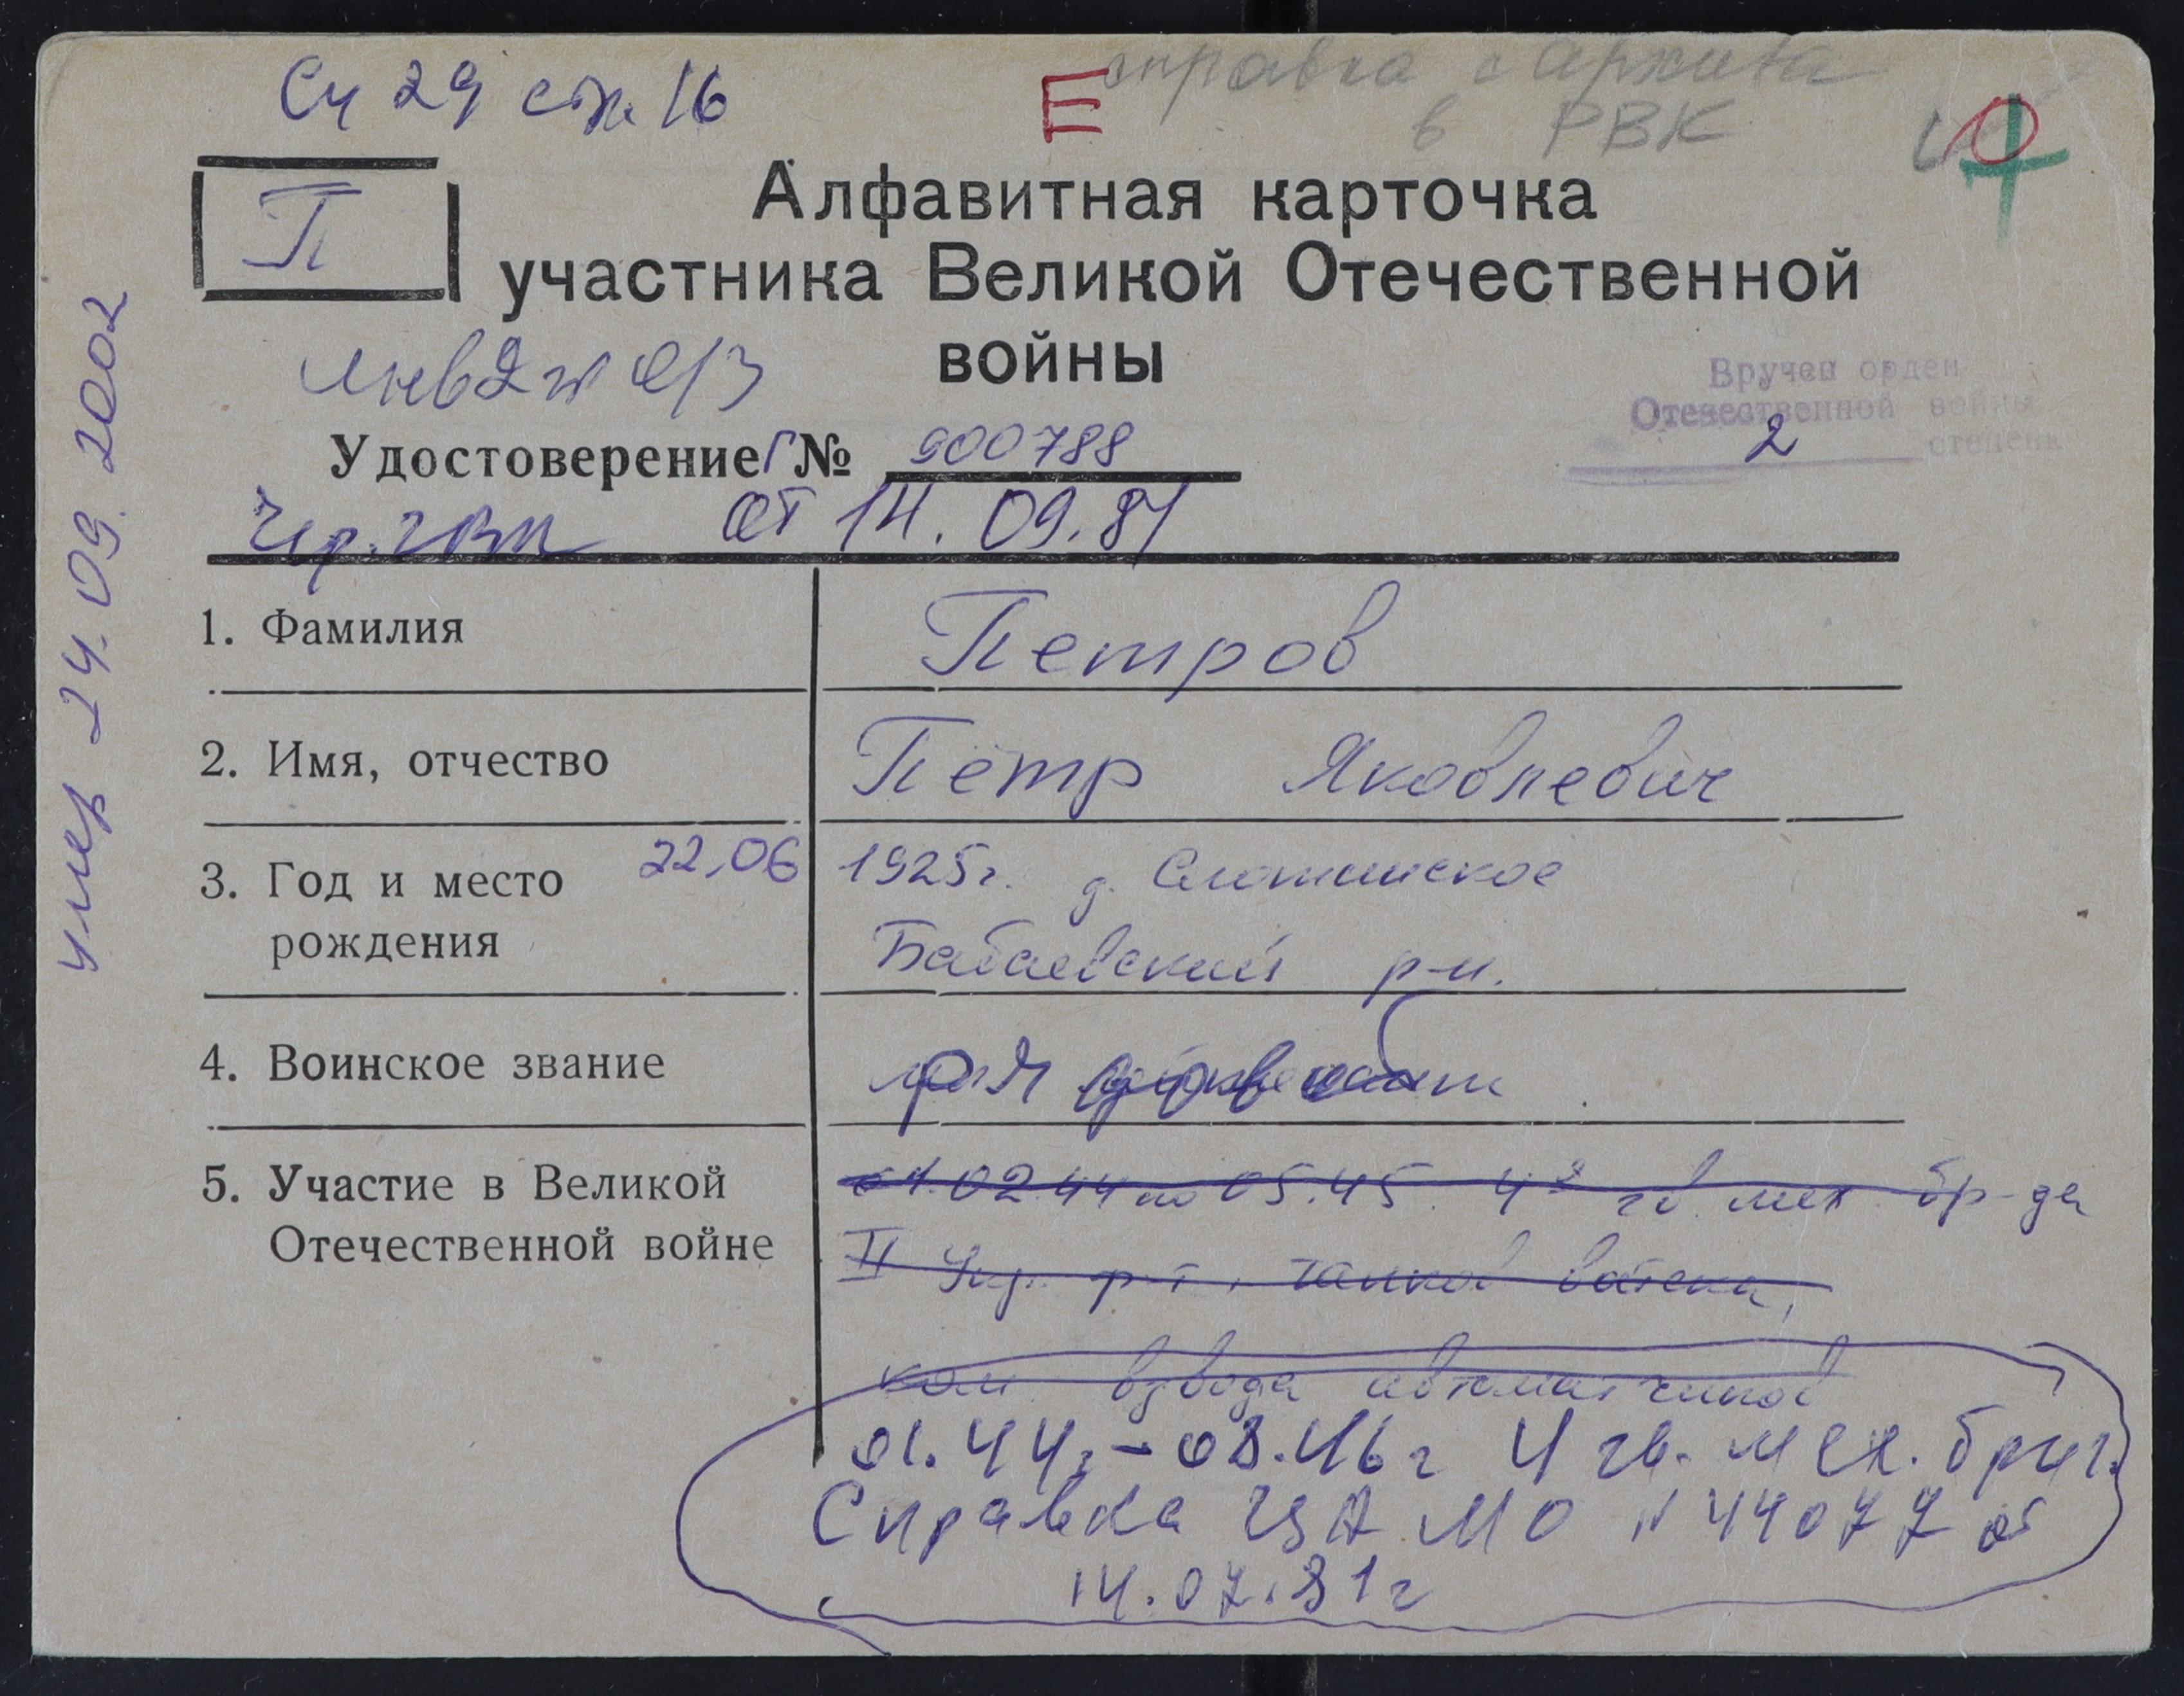 Сч 29 стр. 16
Е справка с архива
в РВК
П
Алфавитная карточка
участника Великой Отечественной
войны
Вручен орден
Отечественной войны
2 степени
Удостоверение Г № 900788
от 14.09.81
умер 24.09.2002
1. Фамилия Петров
2. Имя, отчество Пётр Яковлевич
3. Год и место рождения 22.06 1925г. д.
Бабаевский р-н.
4. Воинское звание
5. Участие в Великой Отечественной войне 02.44 по 05.45. 4я гв. мех. бр-да
II Укр. ф-т,
ком взвода автоматчиков
01.44г - 08.46г 4 гв. мех. бриг.
Справка ЦАМО N 44077 от
14.07.81г